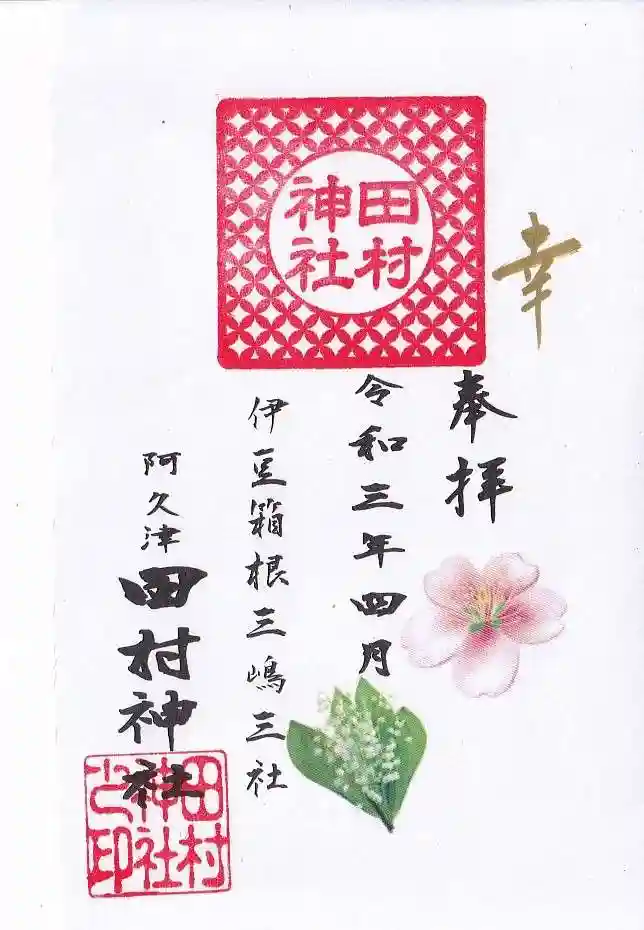 幸
奉拝
田村
神社
令和三年四月
伊豆箱根三嶋三社
阿久津
田村神社
田村
神社
之印